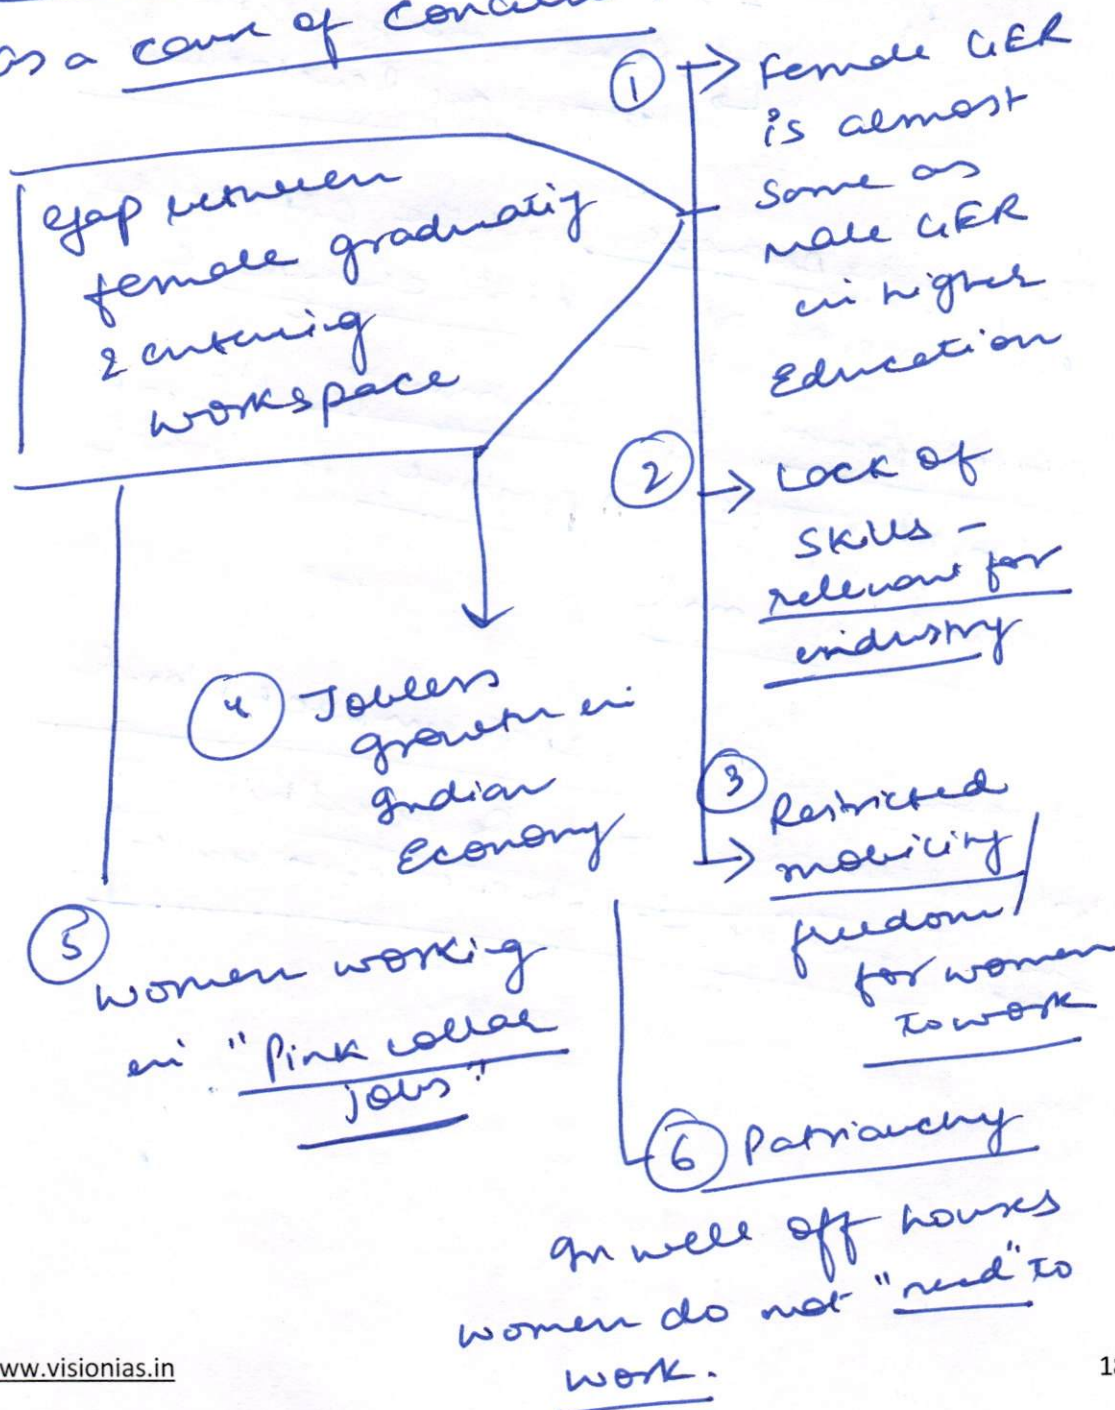 as a cause of
Gap between
female graduating
& entering
workspace
①
Female GER
is almost
same as
male GER
in higher
Education
②
Lack of
skills -
relevant for
industry
③
Restricted
mobility /
freedom
for women
to work
④
Jobless
growth in
Indian
Economy
⑤
women working
in "Pink collar
jobs"
⑥ Patriarchy
In well off houses
women do not "need" to
work.
ww.visionias.in
18